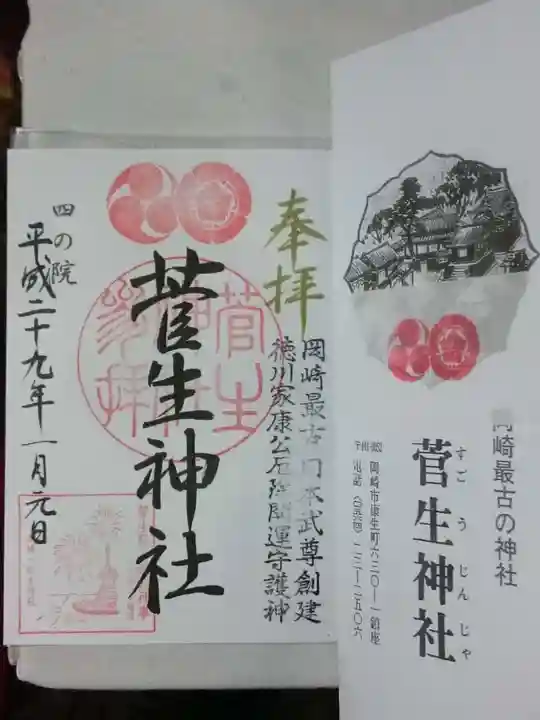 岡崎最古の神社
菅生神社
すごうじんじゃ
岡崎市康生町六三〇ー一鎮座
奉拝
岡崎最古日本武尊創建
徳川家康公厄除開運守護神
菅生神社
菅生
参拝
四の院
平成二十九年一月元日